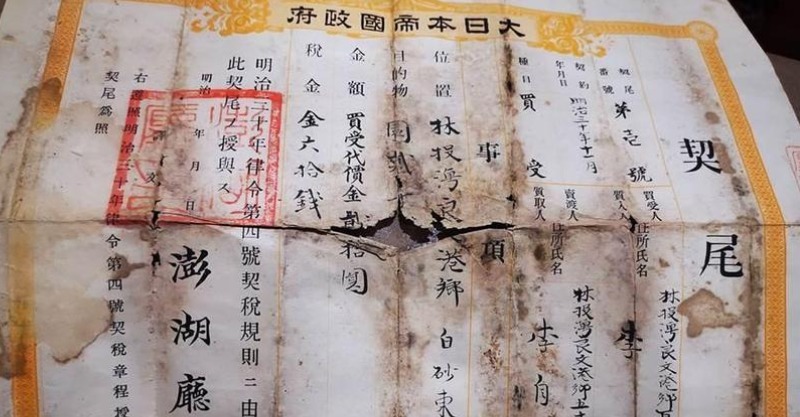 大日本帝國政府
契尾
契尾番號 第壱號
買受人
質入人
住所氏名
林投灣良文港鄉
李
契約年月日 明治三十年十一月
賣渡人
質取人
住所氏名
林投灣良文港鄉
李
種目 買受
事項
位置 林投灣良 港鄉 白砂東
目的物 園
金額 買受代價金貳拾圓
稅金 金六拾錢
明治三十年律令第四號契稅規則ニ由
此契尾ヲ授與ス
明治 年 月 日
澎湖廳
右遵照明治三十年律令第四號契稅章程授
契尾爲照